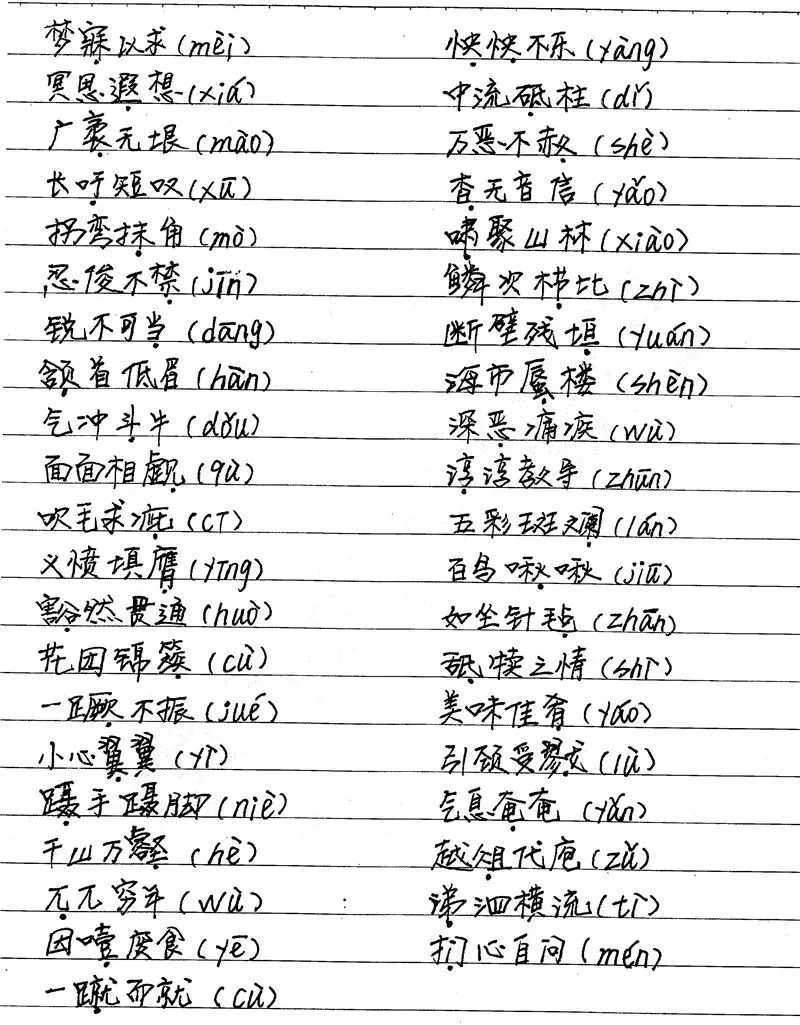 梦寐以求(mèi)
冥思遐想(xiá)
广袤无垠(mào)
长吁短叹(xū)
拐弯抹角(mò)
忍俊不禁(jīn)
锐不可当(dāng)
颔首低眉(hàn)
气冲斗牛(dǒu)
面面相觑(qù)
吹毛求疵(cī)
义愤填膺(yīng)
豁然贯通(huò)
花团锦簇(cù)
一蹶不振(jué)
小心翼翼(yì)
蹑手蹑脚(niè)
千山万壑(hè)
兀兀穷年(wù)
因噎废食(yē)
一蹴而就(cù)
怏怏不乐(yàng)
中流砥柱(dǐ)
万恶不赦(shè)
杳无音信(yǎo)
啸聚山林(xiào)
鳞次栉比(zhì)
断壁残垣(yuán)
海市蜃楼(shèn)
深恶痛疾(wù)
谆谆教导(zhūn)
五彩斑斓(lán)
百鸟啾啾(jiū)
如坐针毡(zhān)
舐犊之情(shì)
美味佳肴(yáo)
引颈受戮(lù)
气息奄奄(yǎn)
越俎代庖(zǔ)
涕泗横流(tì)
扪心自问(mén)